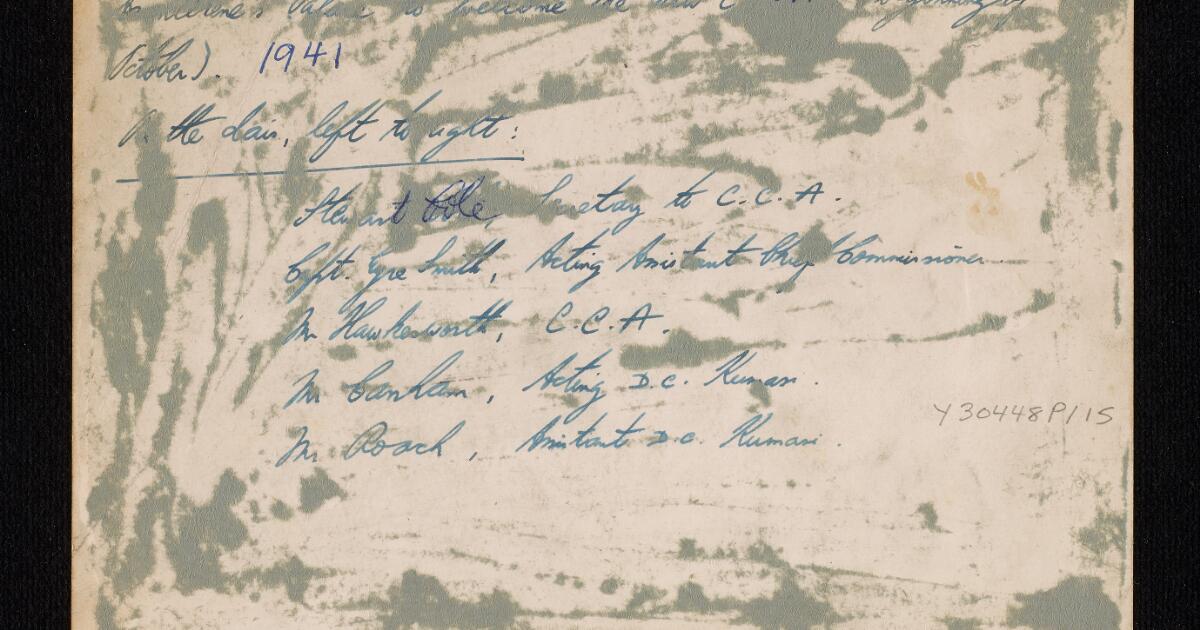 to welcome the new
October). 1941
the dais, left to right:
Stewart Cole, Secretary to C.C.A.
Capt. Eyre Smith, Acting Assistant Chief Commissioner.
Mr Hawkesworth, C.C.A.
Mr Canham, Acting D.C. Kumasi.
Mr Roach, Assistant D.C. Kumasi.
Y30448P/15